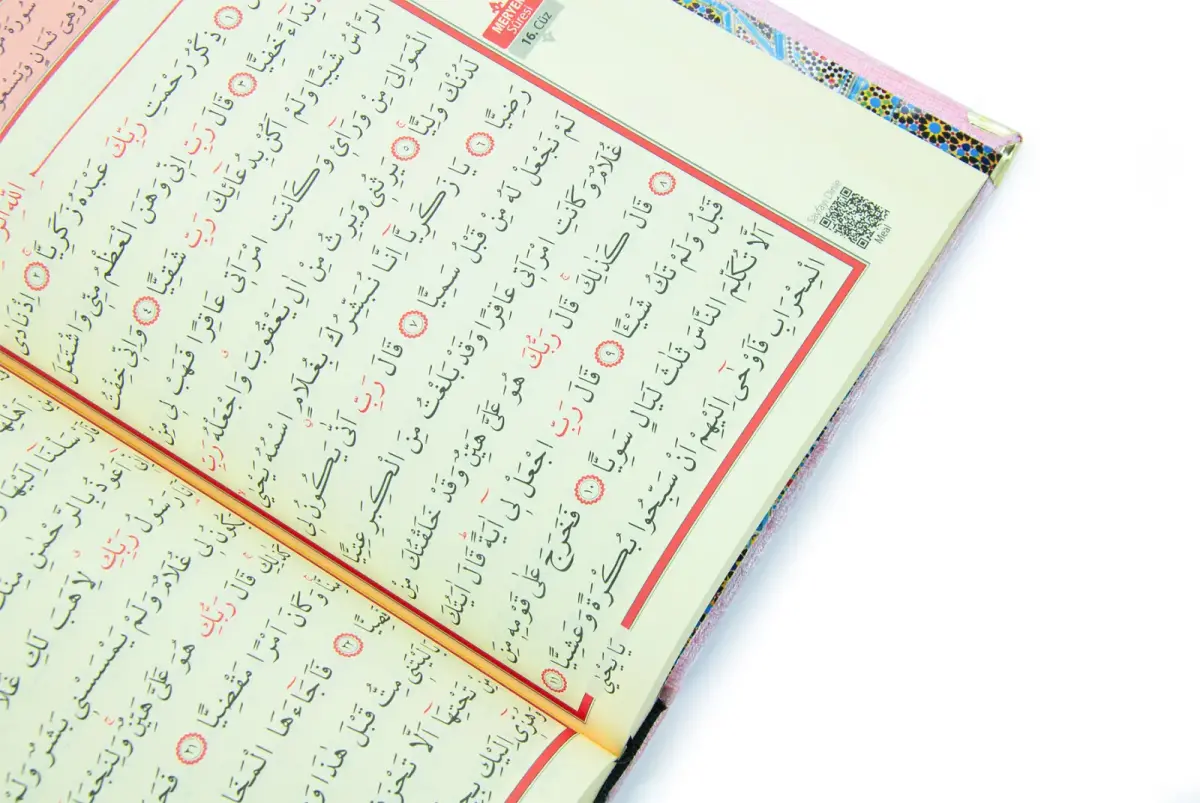 MERYEM
Suresi
16. Cüz
ذِكْرُ رَحْمَتِ رَبِّكَ عَبْدَهُ زَكَرِيَّا ﴿٢﴾ اِذْ نَادٰى
نِدَآءً خَفِيًّا ﴿٣﴾ قَالَ رَبِّ اِنّٖى وَهَنَ الْعَظْمُ مِنّٖى وَاشْتَعَلَ
الرَّأْسُ شَيْبًا وَلَمْ اَكُنْ بِدُعَآئِكَ رَبِّ شَقِيًّا ﴿٤﴾ وَاِنّٖى خِفْتُ
الْمَوَالِىَ مِنْ وَرَآئٖى وَكَانَتِ امْرَاَتٖى عَاقِرًا فَهَبْ لٖى مِنْ
لَدُنْكَ وَلِيًّا ﴿٥﴾ يَرِثُنٖى وَيَرِثُ مِنْ اٰلِ يَعْقُوبَ وَاجْعَلْهُ رَبِّ
رَضِيًّا ﴿٦﴾ يَا زَكَرِيَّآ اِنَّا نُبَشِّرُكَ بِغُلَامٍ اسْمُهُ يَحْيٰى
لَمْ نَجْعَلْ لَهُ مِنْ قَبْلُ سَمِيًّا ﴿٧﴾ قَالَ رَبِّ اَنّٰى يَكُونُ لٖى
غُلَامٌ وَكَانَتِ امْرَاَتٖى عَاقِرًا وَقَدْ بَلَغْتُ مِنَ الْكِبَرِ عِتِيًّا
﴿٨﴾ قَالَ كَذٰلِكَ قَالَ رَبُّكَ هُوَ عَلَىَّ هَيِّنٌ وَقَدْ خَلَقْتُكَ مِنْ
قَبْلُ وَلَمْ تَكُ شَيْـًٔا ﴿٩﴾ قَالَ رَبِّ اجْعَلْ لٖىٓ اٰيَةً قَالَ اٰيَتُكَ
اَلَّا تُكَلِّمَ النَّاسَ ثَلٰثَ لَيَالٍ سَوِيًّا ﴿١٠﴾ فَخَرَجَ عَلٰى قَوْمِهٖ مِنَ
الْمِحْرَابِ فَاَوْحٰٓى اِلَيْهِمْ اَنْ سَبِّحُوا بُكْرَةً وَعَشِيًّا ﴿١١﴾
يَا يَحْيٰى
Meal
اَعُوذُ بِالرَّحْمٰنِ
رَسُولُ رَبِّكِ لِاَهَبَ لَكِ
غُلَامٌ وَلَمْ يَمْسَسْنٖى بَشَرٌ وَلَمْ
قَالَ رَبُّكِ هُوَ عَلَىَّ هَيِّنٌ وَلِنَجْعَلَهُ
كَانَ اَمْرًا مَقْضِيًّا ﴿٢١﴾
﴿٢٢﴾ فَاَجَآءَهَا الْمَخَاضُ
مِتُّ قَبْلَ هٰذَا
تَحْتِهَآ اَلَّا تَحْزَنٖى